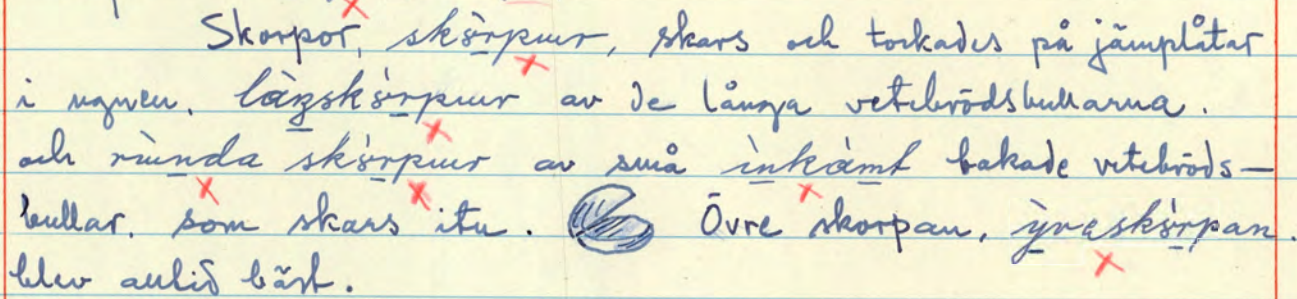 Skorpor, skòrpuur, skars och torkades på järnplåtar
i ugnen. làgskòrpuur av de långa vetebrödsbullarna.
och rùnda skòrpuur av små ìnkàmt bakade vetebröds-
bullar, som skars itu. Övre skorpan, ỳvreskòrpan.
blev alltid bäst.